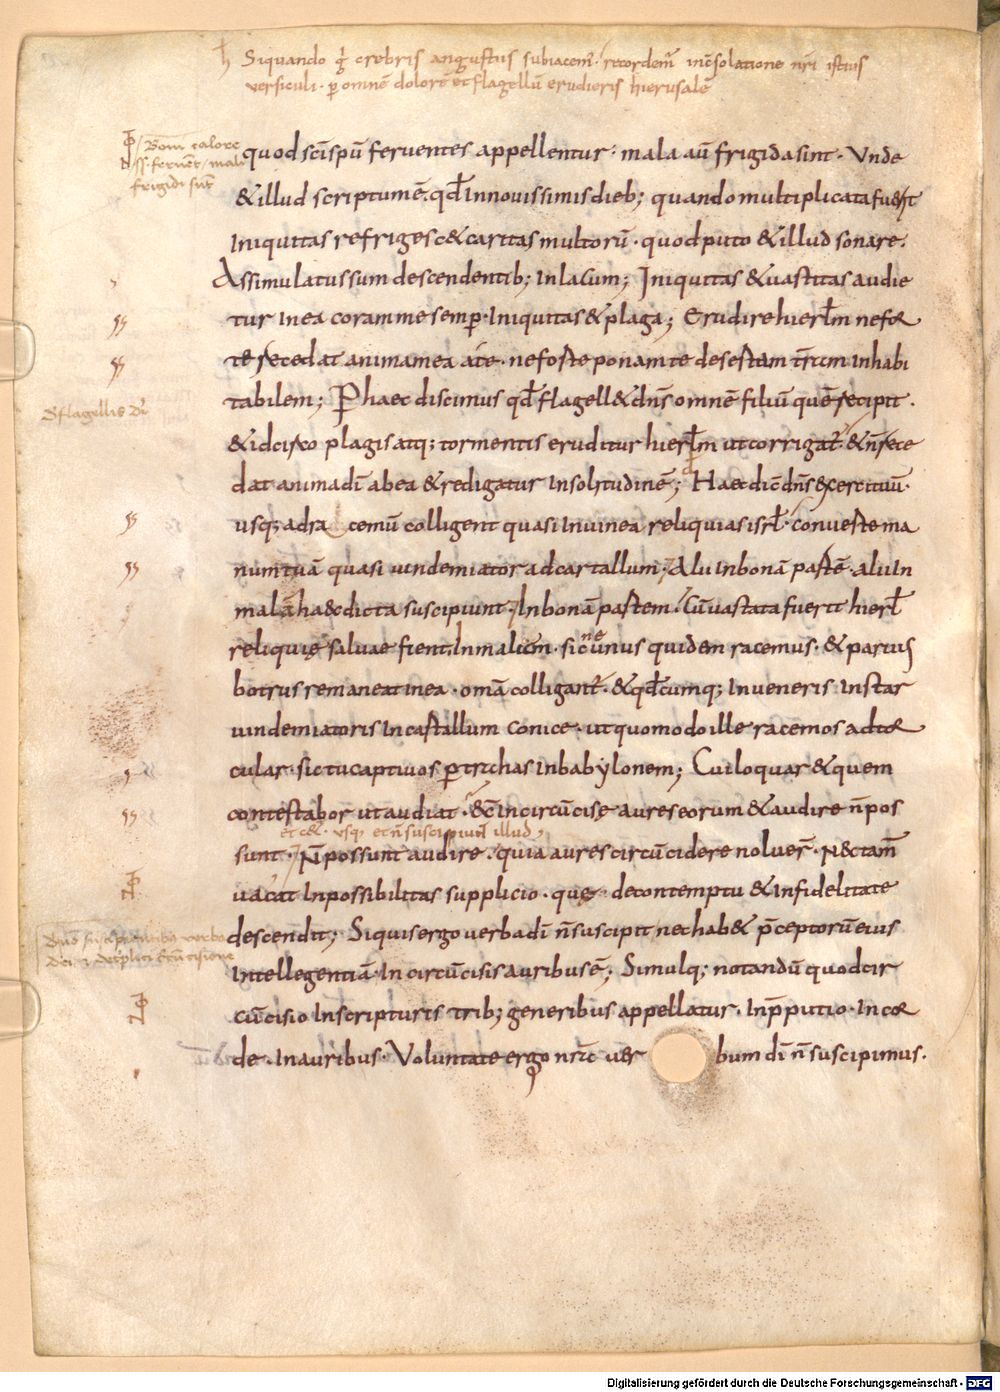 Siquando g̅ crebris angustiis subiacem̅. recordem̅ in c̅solatione nr̅i istius
versiculi. p̲ omne̅ dolore̅ et flagellu̅ erudieris hierusale̅
Boni calore
sp̅s feruent, mali
frigidi sunt
quod sc̅i sp̅u feruentes appellentur. mala au̅ frigida sint. Vnde
& illud scriptum e̅. qđ In nouissimis dieb; quando multiplicata fuerit
Iniquitas refrigesc& caritas multoru̅. quod puto & illud sonare.
Assimulatus sum descendentib; In lacum; Iniquitas & uastitas audie
tur In ea coram me semp̲. Iniquitas & plaga; Erudire hierl̅m ne for
te recedat anima mea a te. ne forte ponam te desertam tr̅am Inhabi
tabilem; P̲ haec discimus qđ flagell& dn̅s omne̅ filiu̅ que̅ recipit.
& flagellis di̅
& idcirco plagis atq; tormentis eruditur hierl̅m ut corrigat̅ & n̅ rece
dat anima di̅ ab ea & redigatur In solitudine̅; Haec dic̅ dn̅s exercituu̅.
usq; ad ra cemu̅ colligent quasi In uinea reliquias isrl̅. conuerte ma
num tua̅ quasi uindemiator ad cartallum; Alii In bona̅ parte̅. alii In
mala̅ haec dicta suscipiunt. In bona̅ partem. Cu̅ uastata fuerit hierl̅
reliquię saluae fient. In malam. sic ne unus quidem racemus. & paruus
botrus remaneat In ea. om̅a colligant̅. & qđcumq; Inueneris Instar
uindemiatoris In cartallum conice. ut quomodo ille racemos ad tor
cular. sic tu captiuos p̲trahas In babylonem; Cui loquar & quem
contestabor ut audiat. & c̅ Incircu̅cise aures eorum & audire n̅ pos
et cet. usq; et n̅ suscipiunt illud
sunt. N̅ possunt audire. quia aures circu̅cidere noluer̅. Nec tam̅
uacat Inpossibilitas supplicio. quę de contemptu & Infidelitate
descendit; Siquis ergo uerba di̅ n̅ suscipit nec hab& p̅ceptoru̅ eius
Intellegentia̅. Incircu̅cisis auribus e̅; Simulq; notandu̅ quod cir
cu̅cisio In scripturis trib; generibus appellatur. In p̅putio. In cor
de. In auribus. Voluntate ergo nr̅a uer bum di̅ n̅ suscipimus.
Digitalisierung gefördert durch die Deutsche Forschungsgemeinschaft - DFG